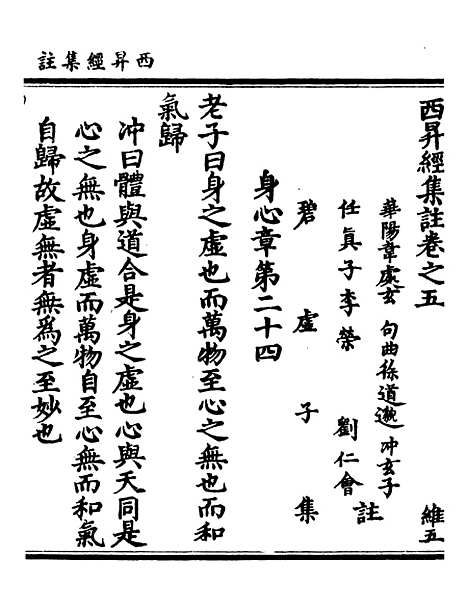 西昇經集註
西昇經集註卷之五 維五
華陽韋處玄 句曲徐道邈 冲玄子
任真子李榮 劉仁會 註
碧虛子 集
身心章第二十四
老子曰身之虛也而萬物至心之無也而和
氣歸
冲曰體與道合是身之虛也心與天同是
心之無也身虛而萬物自至心無而和氣
自歸故虛無者無為之至妙也